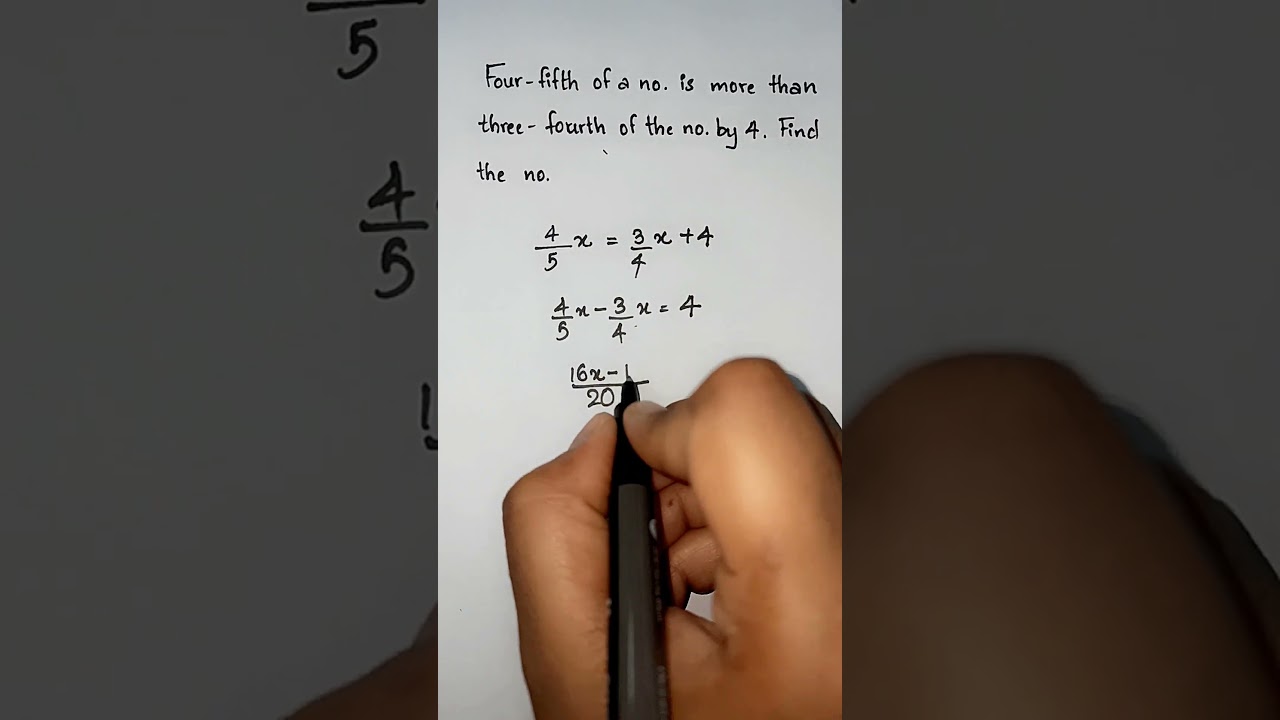 Four-fifth of a no. is more than
three-fourth of the no. by 4. Find
the no.
4/5 x = 3/4 x + 4
4/5 x - 3/4 x = 4
16x - 1
20